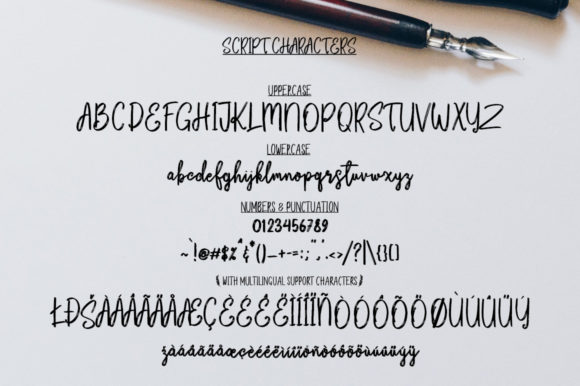 SCRIPT CHARACTERS
UPPERCASE
ABCDEFGHIJKLMNOPQRSTUVWXYZ
LOWERCASE
abcdefghijklmnopqrstuvwxyz
NUMBERS & PUNCTUATION
0123456789
~`!@#$%^&*()_+-=:;"',.<>/?|\{}[]
(WITH MULTILINGUAL SUPPORT CHARACTERS)